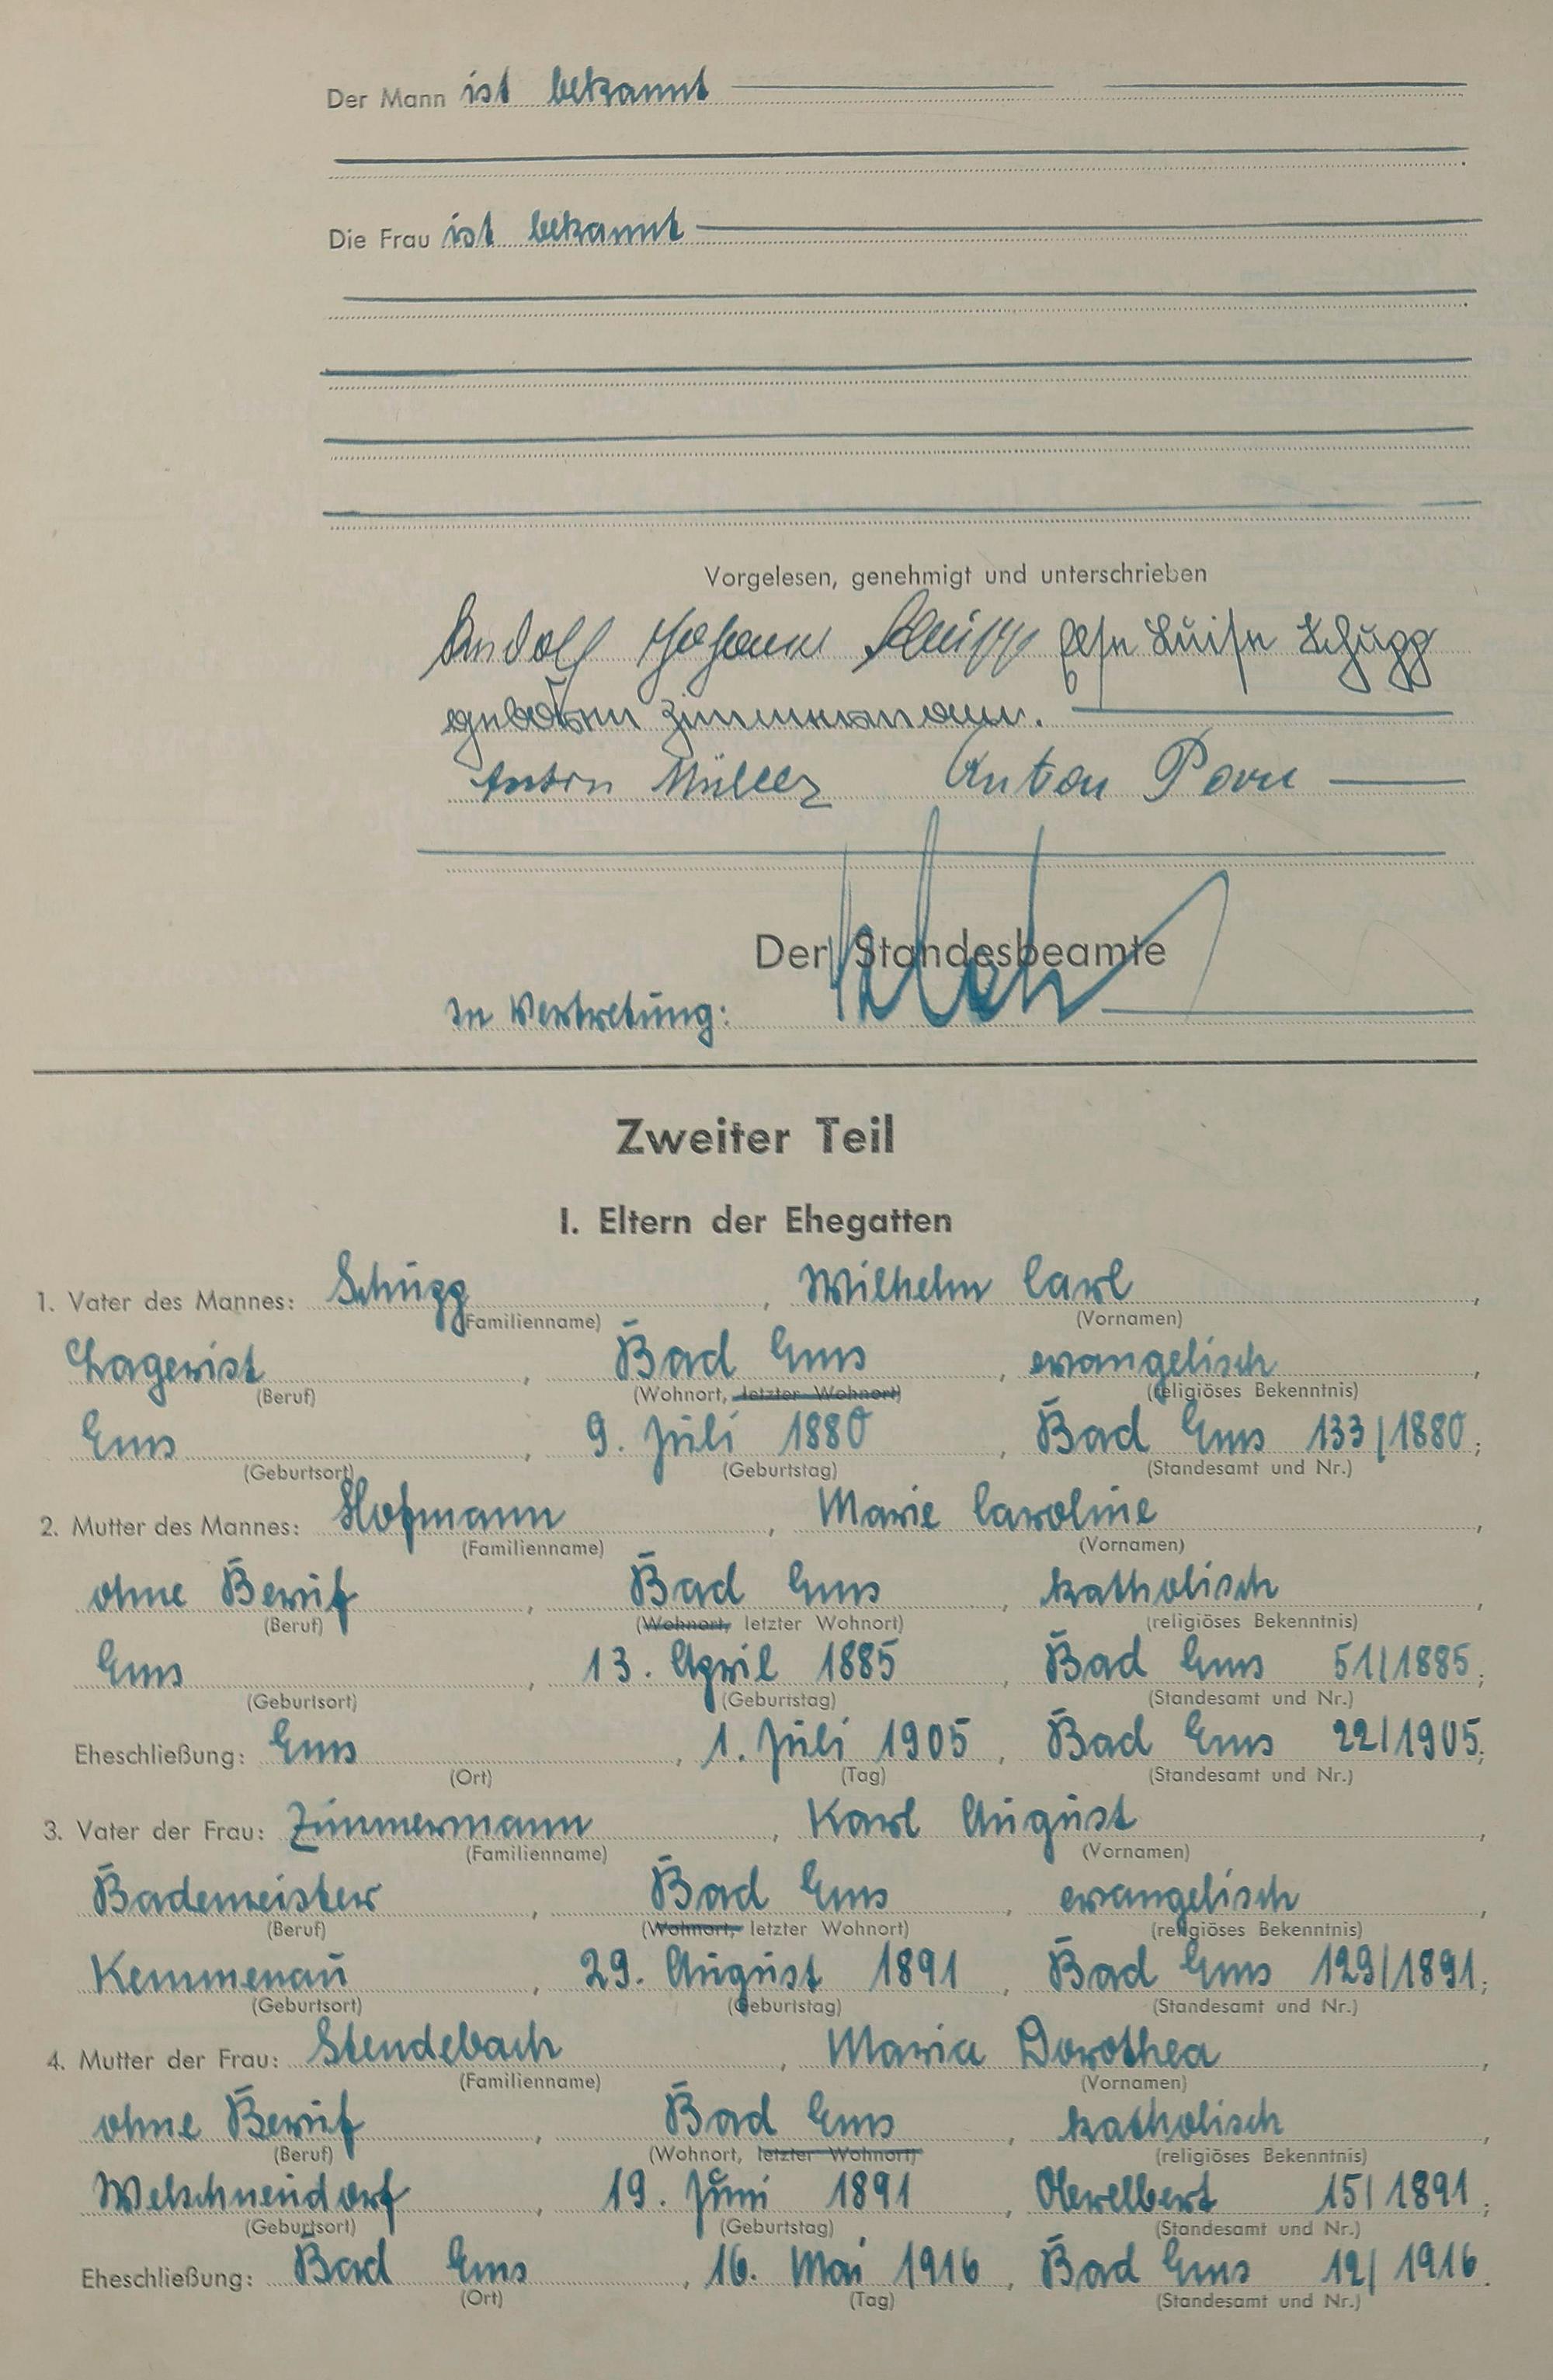 Der Mann ist bekannt
Die Frau ist bekannt
Vorgelesen, genehmigt und unterschrieben
Rudolf Johann Schupp Else Luise Schugg
geborene Zimmermann.
Anton Müller Anton
Der Standesbeamte
In Vertretung:
Zweiter Teil
I. Eltern der Ehegatten
1. Vater des Mannes: Schugg, Wilhelm Carl,
(Familienname) (Vornamen)
Lagerist, Bad Ems, evangelisch,
(Beruf) (Wohnort, letzter Wohnort) (religiöses Bekenntnis)
Ems, 9. Juli 1880, Bad Ems 133/1880;
(Geburtsort) (Geburtstag) (Standesamt und Nr.)
2. Mutter des Mannes: Hofmann, Marie Caroline,
(Familienname) (Vornamen)
ohne Beruf, Bad Ems, katholisch,
(Beruf) (Wohnort, letzter Wohnort) (religiöses Bekenntnis)
Ems, 13. April 1885, Bad Ems 51/1885;
(Geburtsort) (Geburtstag) (Standesamt und Nr.)
Eheschließung: Ems, 1. Juli 1905, Bad Ems 22/1905;
(Ort) (Tag) (Standesamt und Nr.)
3. Vater der Frau: Zimmermann, Karl August,
(Familienname) (Vornamen)
Bademeister, Bad Ems, evangelisch,
(Beruf) (Wohnort, letzter Wohnort) (religiöses Bekenntnis)
Kemmenau, 29. August 1891, Bad Ems 129/1891;
(Geburtsort) (Geburtstag) (Standesamt und Nr.)
4. Mutter der Frau: Stendebach, Maria Dorothea,
(Familienname) (Vornamen)
ohne Beruf, Bad Ems, katholisch,
(Beruf) (Wohnort, letzter Wohnort) (religiöses Bekenntnis)
Welschneudorf, 19. Juni 1891, Oberelbert 15/1891;
(Geburtsort) (Geburtstag) (Standesamt und Nr.)
Eheschließung: Bad Ems, 16. Mai 1916, Bad Ems 12/1916.
(Ort) (Tag) (Standesamt und Nr.)